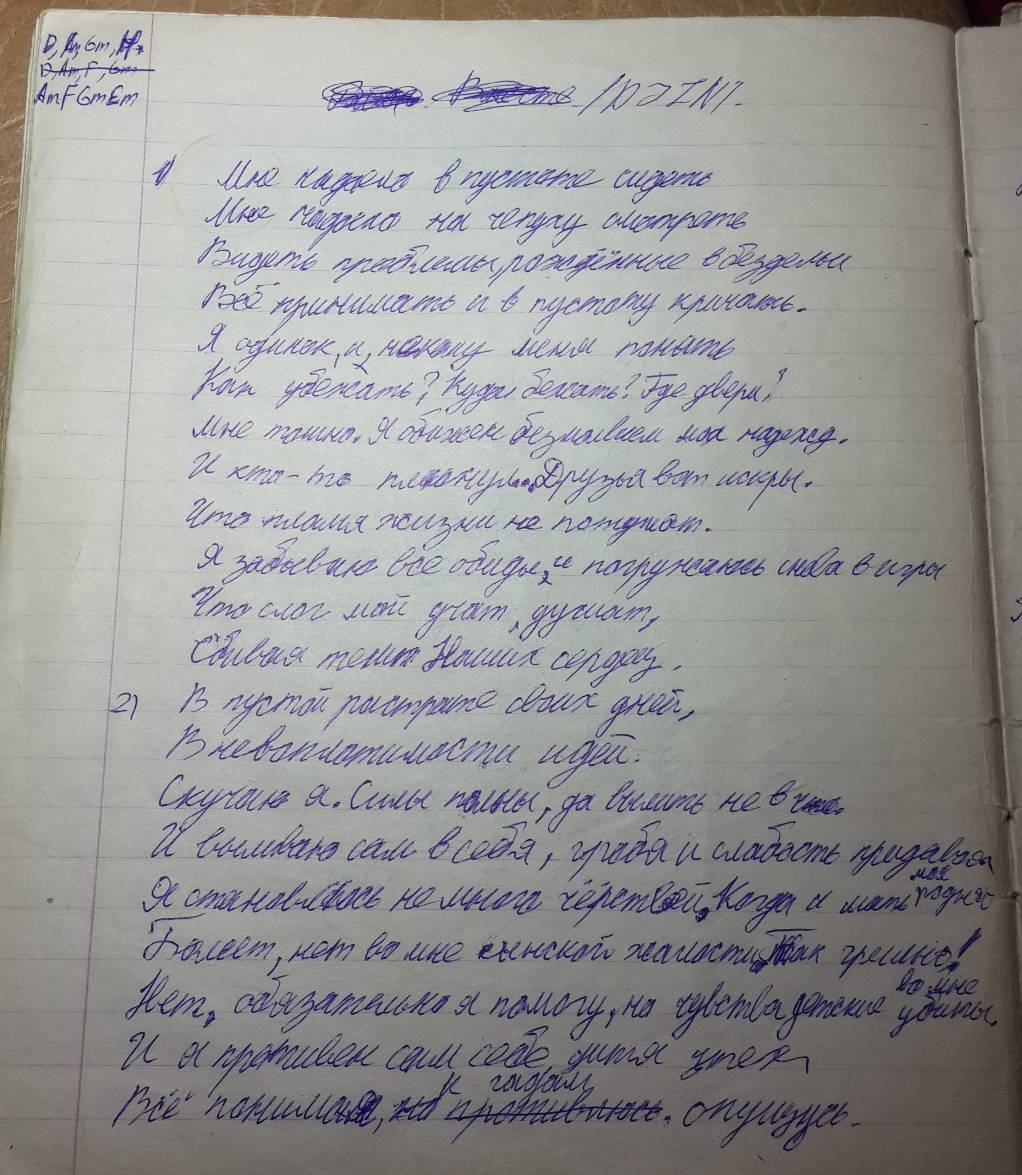 D, Am, Gm,
D, Am, F, Gm
Am F Gm Em
1) Мне надоело в пустоте сидеть
Мне надоело на чепуху смотреть
Видеть проблемы, рождённые в безделье
Всё принимать и в пустоту кричать.
Я одинок, и, некому меня понять
Как убежать? Куда бежать? Где двери?
Мне тошно. Я обижен безмолвием моих надежд.
И кто-то плюнул... Друзья вот искры.
Что пламя жизни не потушат.
Я забываю все обиды, и погружаюсь снова в игры
Что слог мой учат, душат,
Сбивая темп Наших сердец.
2) В пустой растрате своих дней,
В невоплотимости идей.
Скучаю я. Силы полны, да вылить не в что.
И выливаю сам в себя, гробя и слабость придавая
Я становлюсь немного чёрствей, Когда и мать моя родная
Болеет, нет во мне сынской жалости. Так грешно!
Нет, обязательно я помогу, но чувства детские во мне убиты.
И я противен сам себе, дитя утех
Всё понимая, но противлюсь. к гадам опущусь.